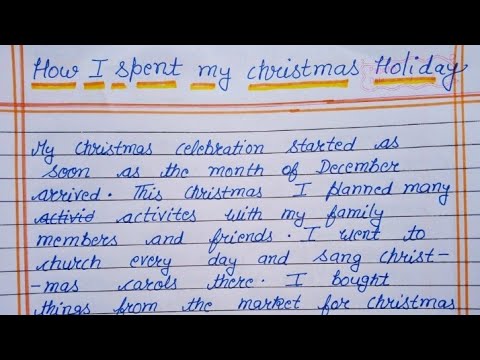 How I spent my christmas Holiday
My Christmas celebration started as
soon as the month of December
arrived. This Christmas I planned many
activid activites with my family
members and friends. I went to
church every day and sang christ-
-mas carols there. I bought
things from the market for christmas